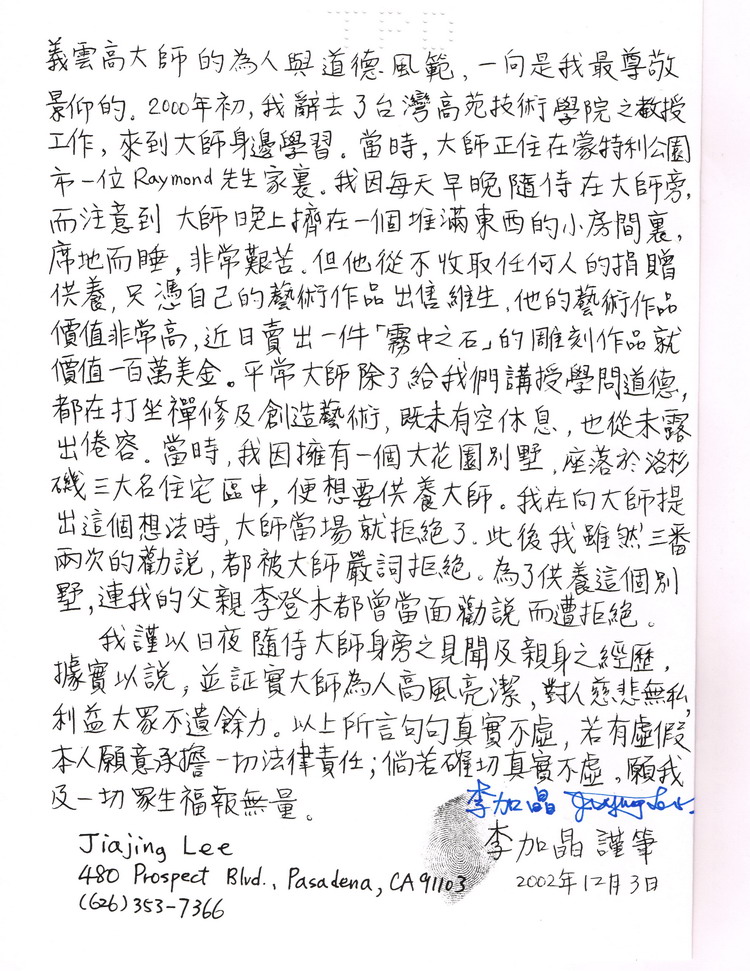 義雲高大師的為人與道德風範，一向是我最尊敬
景仰的。2000年初，我辭去了台灣高苑技術學院之教授
工作，來到大師身邊學習。當時，大師正住在蒙特利公園
市一位Raymond先生家裏。我因每天早晚隨侍在大師旁，
而注意到大師晚上擠在一個堆滿東西的小房間裏，
席地而睡，非常艱苦。但他從不收取任何人的捐贈
供養，只憑自己的藝術作品出售維生，他的藝術作品
價值非常高，近日賣出一件「霧中之石」的雕刻作品就
價值一百萬美金。平常大師除了給我們講授學問道德，
都在打坐禪修及創造藝術，既未有空休息，也從未露
出倦容。當時，我因擁有一個大花園別墅，座落於洛杉
磯三大名住宅區中，便想要供養大師。我在向大師提
出這個想法時，大師當場就拒絕了。此後我雖然三番
兩次的勸說，都被大師嚴詞拒絕。為了供養這個別
墅，連我的父親李登木都曾當面勸說而遭拒絕。
我謹以日夜隨侍大師身旁之見聞及親身之經歷，
據實以說，並証實大師為人高風亮潔，對人慈悲無私，
利益大眾不遺餘力。以上所言句句真實不虛，若有虛假
本人願意承擔一切法律責任；倘若確切真實不虛，願我
及一切眾生福報無量。
李加晶 Jiajing Lee
李加晶 謹筆
2002年12月3日
Jiajing Lee
480 Prospect Blvd., Pasadena, CA 91103
(626)353-7366